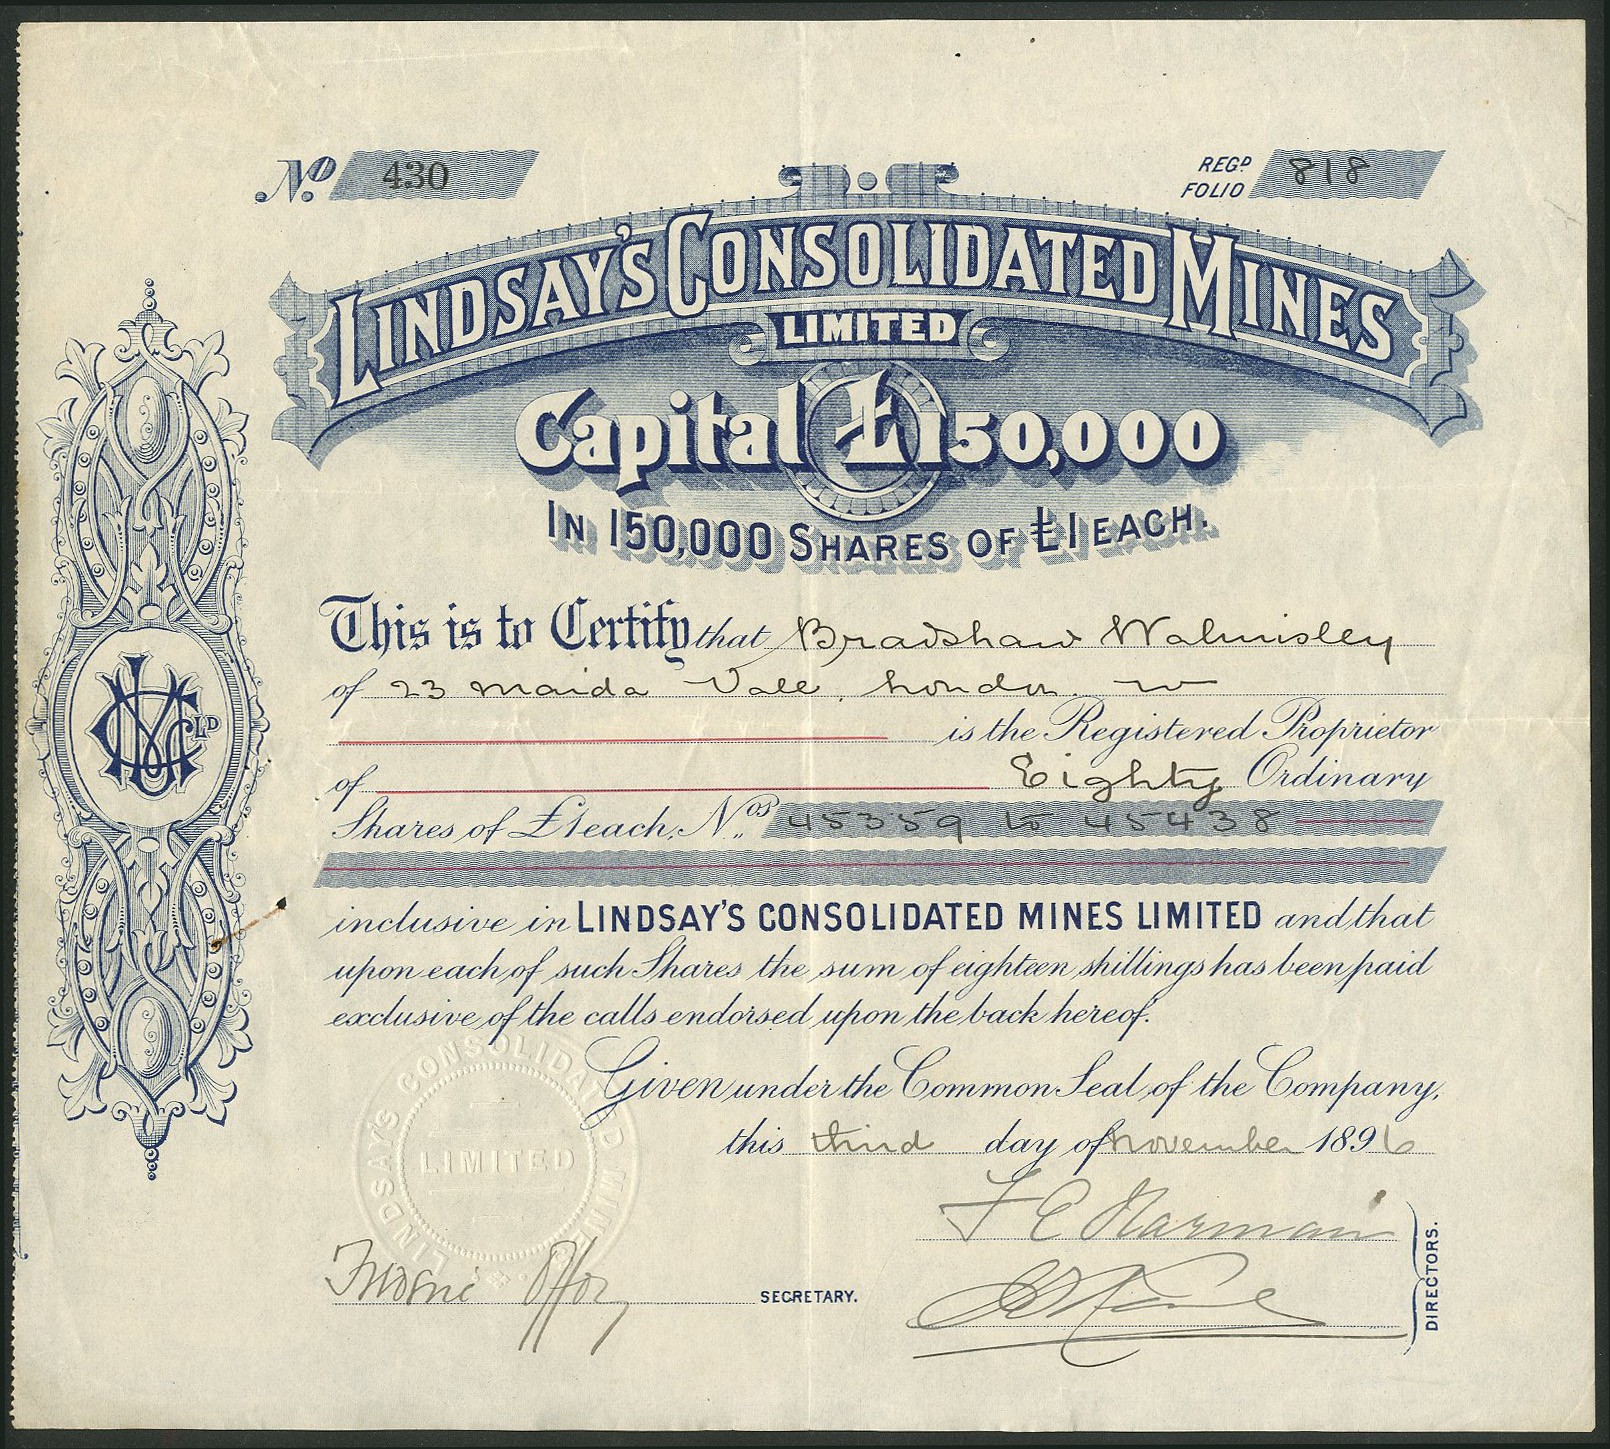 No. 430
REGD FOLIO 818
LINDSAY'S CONSOLIDATED MINES
LIMITED
Capital £150,000
IN 150,000 SHARES OF £1 EACH.
This is to Certify that Bradshaw Walmisley
of 23 Maida Vale, London. W
is the Registered Proprietor
of Eighty Ordinary
Shares of £1 each, Nos. 45359 to 45438
inclusive in LINDSAY'S CONSOLIDATED MINES LIMITED and that
upon each of such Shares the sum of eighteen shillings has been paid
exclusive of the calls endorsed upon the back hereof.
Given under the Common Seal of the Company,
this third day of November 1896
LINDSAY'S CONSOLIDATED MINES
LIMITED
F C Harman
SECRETARY.
DIRECTORS.
LD